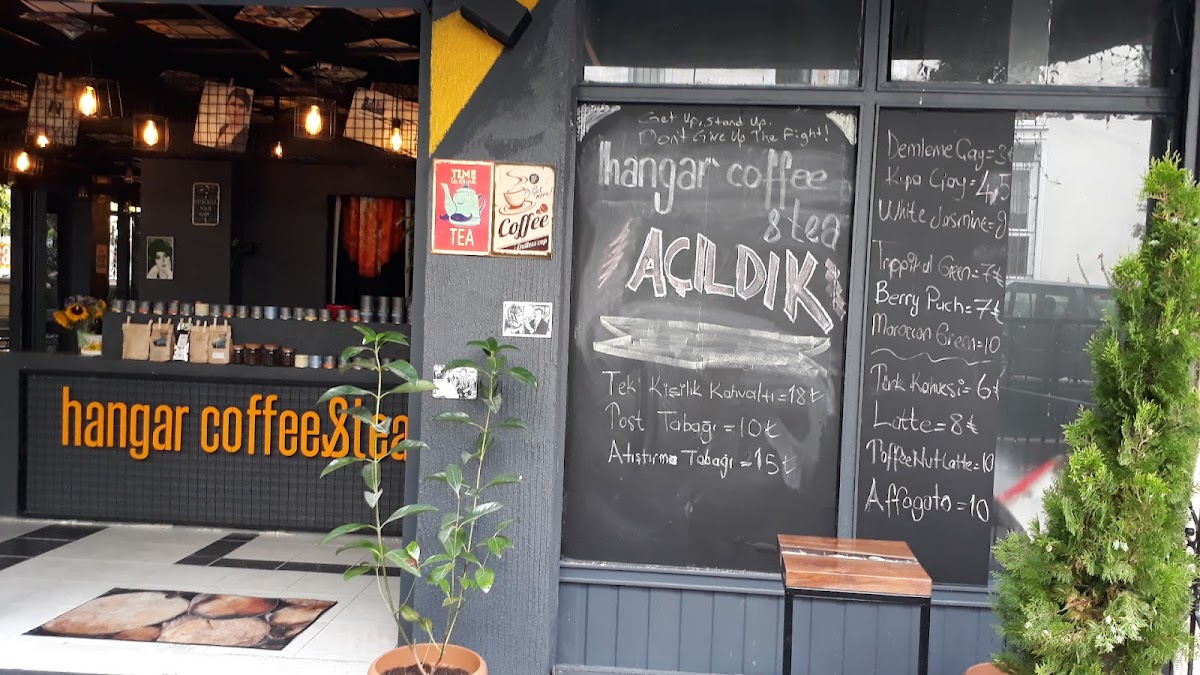 hangar coffee&tea
TIME
to drink
TEA
Coffee
Endless cup
Get Up, Stand Up.
Don't Give Up The Fight!
hangar coffee
&tea
AÇILDIK
Tek Kişilik Kahvaltı = 18₺
Post Tabağı = 10₺
Atıştırma Tabağı = 15₺
Demleme Çay = 3₺
Kupa Çay = 4,5
White Jasmine = 9
Troppikal Green = 7₺
Berry Puch = 7₺
Moroccon Green = 10
Türk Kahvesi = 6₺
Latte = 8₺
Toffee Nut Latte = 10
Affogato = 10